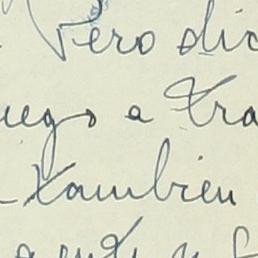 Pero dic
uego a Tra
-también